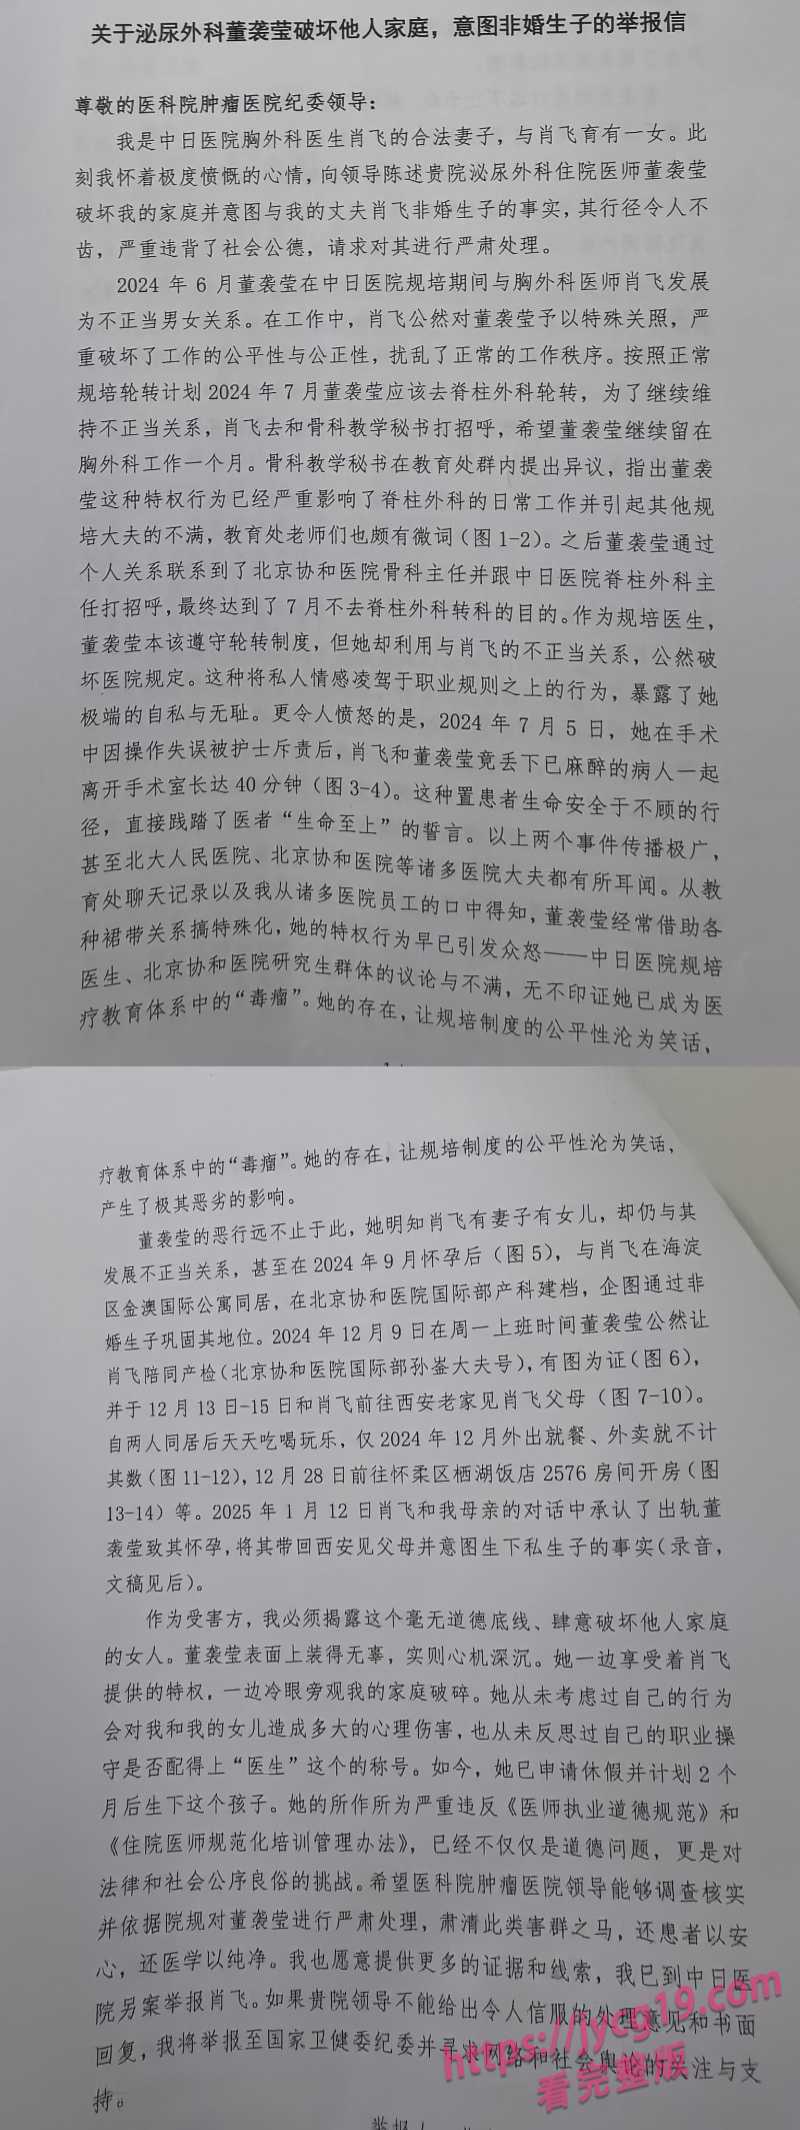 关于泌尿外科董袭莹破坏他人家庭，意图非婚生子的举报信
尊敬的医科院肿瘤医院纪委领导：
我是中日医院胸外科医生肖飞的合法妻子，与肖飞育有一女。此
刻我怀着极度愤慨的心情，向领导陈述贵院泌尿外科住院医师董袭莹
破坏我的家庭并意图与我的丈夫肖飞非婚生子的事实，其行径令人不
齿，严重违背了社会公德，请求对其进行严肃处理。
2024 年 6 月董袭莹在中日医院规培期间与胸外科医师肖飞发展
为不正当男女关系。在工作中，肖飞公然对董袭莹予以特殊关照，严
重破坏了工作的公平性与公正性，扰乱了正常的工作秩序。按照正常
规培轮转计划 2024 年 7 月董袭莹应该去脊柱外科轮转，为了继续维
持不正当关系，肖飞去和骨科教学秘书打招呼，希望董袭莹继续留在
胸外科工作一个月。骨科教学秘书在教育处群内提出异议，指出董袭
莹这种特权行为已经严重影响了脊柱外科的日常工作并引起其他规
培大夫的不满，教育处老师们也颇有微词（图 1-2）。之后董袭莹通过
个人关系联系到了北京协和医院骨科主任并跟中日医院脊柱外科主
任打招呼，最终达到了 7 月不去脊柱外科转科的目的。作为规培医生，
董袭莹本该遵守轮转制度，但她却利用与肖飞的不正当关系，公然破
坏医院规定。这种将私人情感凌驾于职业规则之上的行为，暴露了她
极端的自私与无耻。更令人愤怒的是，2024 年 7 月 5 日，她在手术
中因操作失误被护士斥责后，肖飞和董袭莹竟丢下已麻醉的病人一起
离开手术室长达 40 分钟（图 3-4）。这种置患者生命安全于不顾的行
径，直接践踏了医者“生命至上”的誓言。以上两个事件传播极广，
甚至北大人民医院、北京协和医院等诸多医院大夫都有所耳闻。从教
育处聊天记录以及我从诸多医院员工的口中得知，董袭莹经常借助各
种裙带关系搞特殊化，她的特权行为早已引发众怒——中日医院规培
医生、北京协和医院研究生群体的议论与不满，无不印证她已成为医
疗教育体系中的“毒瘤”。她的存在，让规培制度的公平性沦为笑话，
1
疗教育体系中的“毒瘤”。她的存在，让规培制度的公平性沦为笑话，
产生了极其恶劣的影响。
董袭莹的恶行远不止于此，她明知肖飞有妻子有女儿，却仍与其
发展不正当关系，甚至在 2024 年 9 月怀孕后（图 5），与肖飞在海淀
区金澳国际公寓同居，在北京协和医院国际部产科建档，企图通过非
婚生子巩固其地位。2024 年 12 月 9 日在周一上班时间董袭莹公然让
肖飞陪同产检（北京协和医院国际部孙崟大夫号），有图为证（图 6），
并于 12 月 13 日-15 日和肖飞前往西安老家见肖飞父母（图 7-10）。
自两人同居后天天吃喝玩乐，仅 2024 年 12 月外出就餐、外卖就不计
其数（图 11-12），12 月 28 日前往怀柔区栖湖饭店 2576 房间开房（图
13-14）等。2025 年 1 月 12 日肖飞和我母亲的对话中承认了出轨董
袭莹致其怀孕，将其带回西安见父母并意图生下私生子的事实（录音，
文稿见后）。
作为受害方，我必须揭露这个毫无道德底线、肆意破坏他人家庭
的女人。董袭莹表面上装得无辜，实则心机深沉。她一边享受着肖飞
提供的特权，一边冷眼旁观我的家庭破碎。她从未考虑过自己的行为
会对我和我的女儿造成多大的心理伤害，也从未反思过自己的职业操
守是否配得上“医生”这个的称号。如今，她已申请休假并计划 2 个
月后生下这个孩子。她的所作所为严重违反《医师执业道德规范》和
《住院医师规范化培训管理办法》，已经不仅仅是道德问题，更是对
法律和社会公序良俗的挑战。希望医科院肿瘤医院领导能够调查核实
并依据院规对董袭莹进行严肃处理，肃清此类害群之马，还患者以安
心，还医学以纯净。我也愿意提供更多的证据和线索，我已到中日医
院另案举报肖飞。如果贵院领导不能给出令人信服的处理意见和书面
回复，我将举报至国家卫健委纪委并寻求网络和社会舆论的关注与支
持。
https://jycg19.com
看完整版
举报人